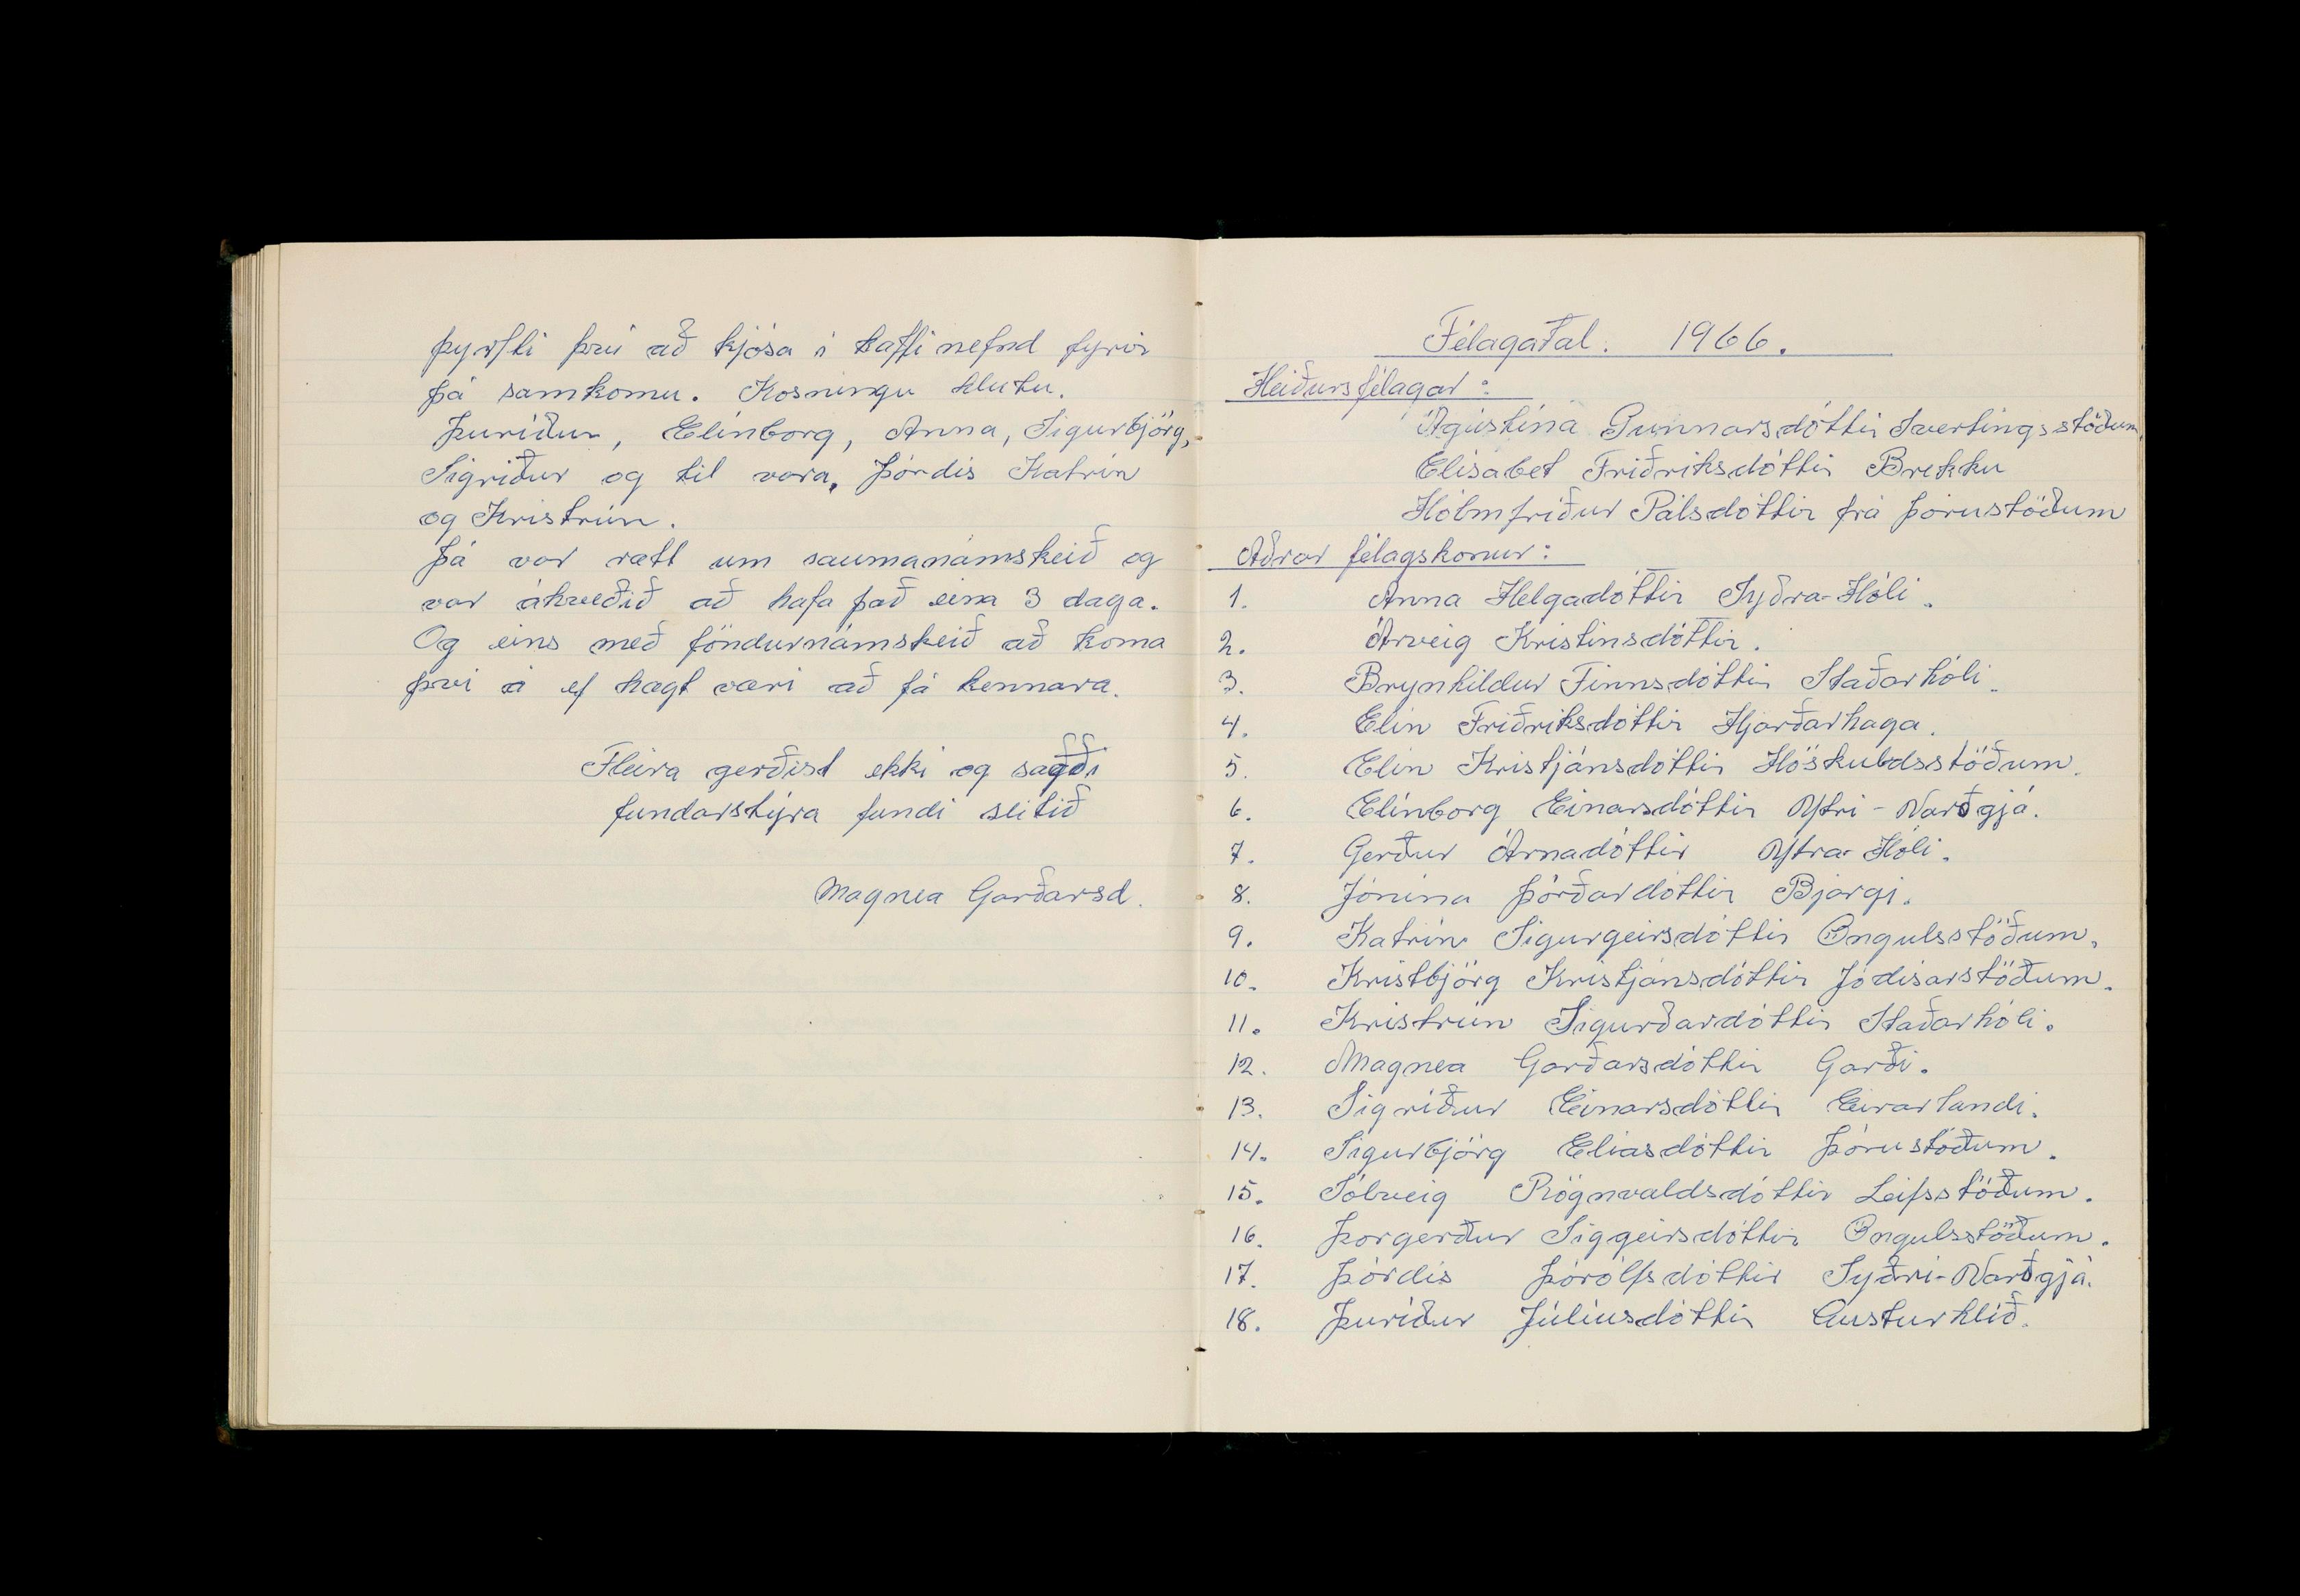 þyrfti því að kjósa í kaffinefnd fyrir
þá samkomu. Kosningu hlutu.
Þuríður, Elínborg, Anna, Sigurbjörg,
Sigríður og til vara. Þórdís Katrín
og Kristrún.
Þá var rætt um saumanámskeið og
var ákveðið að hafa það eina 3 daga.
Og eins með föndurnámskeið að koma
því á ef hægt væri að fá kennara.
Fleira gerðist ekki og sagði
fundarstýra fundi slitið
Magnea Garðarsd.
Félagatal. 1966.
Heiðursfélagar:
Ágústína Gunnarsdóttir Svertingsstöðum
Elísabet Friðriksdóttir Brekku
Hólmfríður Pálsdóttir frá Þórustöðum
Aðrar félagskonur:
1. Anna Helgadóttir Syðra-Hóli.
2. Árveig Kristinsdóttir.
3. Brynhildur Finnsdóttir Staðarhóli.
4. Elín Friðriksdóttir Hjarðarhaga.
5. Elín Kristjánsdóttir Höskuldsstöðum.
6. Elínborg Einarsdóttir Ytri-Varðgjá.
7. Gerður Árnadóttir Ytra-Hóli.
8. Jónína Þórðardóttir Bjargi.
9. Katrín Sigurgeirsdóttir Öngulsstöðum.
10. Kristbjörg Kristjánsdóttir Jódísarstöðum.
11. Kristrún Sigurðardóttir Staðarhóli.
12. Magnea Garðarsdóttir Garði.
13. Sigríður Einarsdóttir Eirarlandi.
14. Sigurbjörg Elíasdóttir Þórustöðum.
15. Sólveig Rögnvaldsdóttir Leifsstöðum.
16. Þorgerður Siggeirsdóttir Öngulsstöðum.
17. Þórdís Þórólfsdóttir Syðri-Varðgjá.
18. Þuríður Júlíusdóttir Austurhlíð.